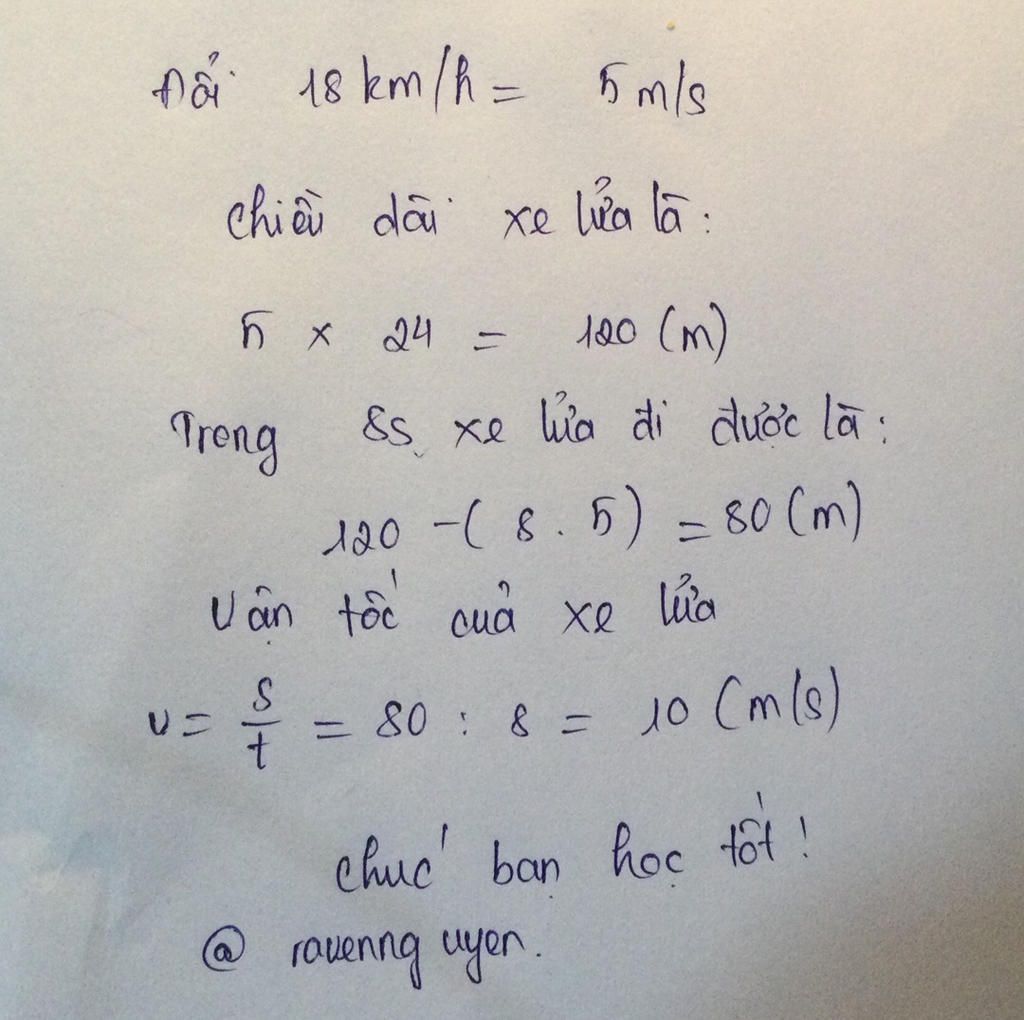 Đổi 18 km/h = 5 m/s
Chiều dài xe lửa là:
5 × 24 = 120 (m)
Trong 8s, xe lửa đi được là:
120 - ( 8 . 5 ) = 80 (m)
Vận tốc của xe lửa
v = s/t = 80 : 8 = 10 (m/s)
Chúc bạn học tốt!
@ ravenng uyen.